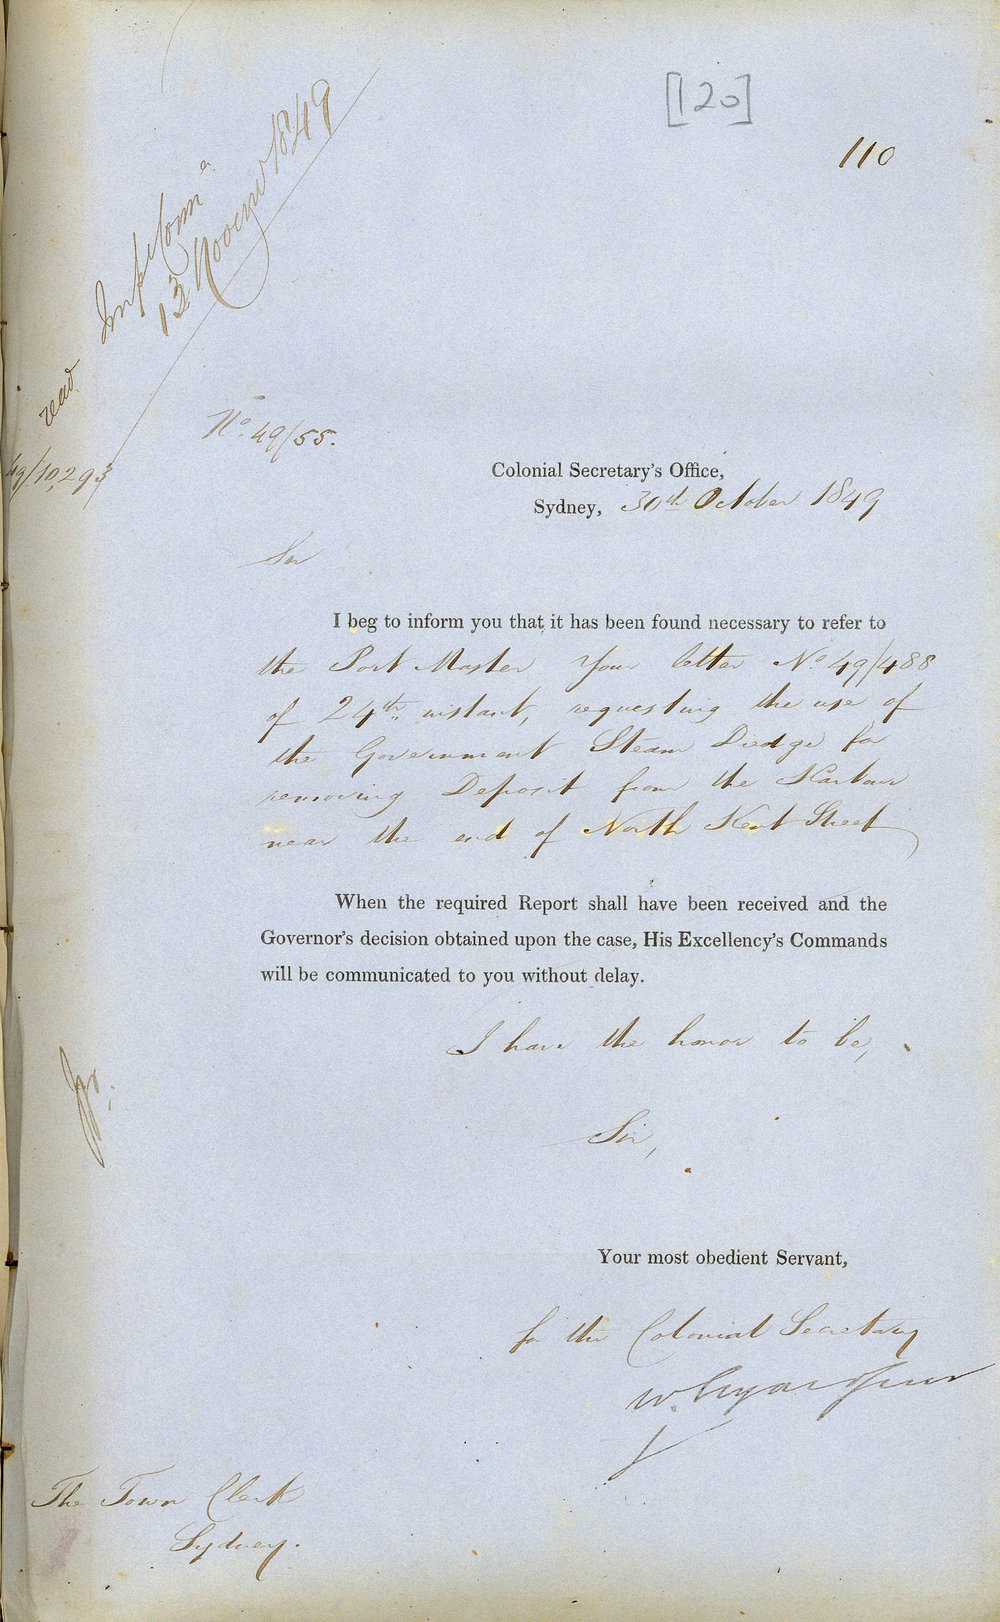 [120]
110
Imp Comm
13 Novemr 1849
read
49/10,293
No. 49/55.
Colonial Secretary's Office,
Sydney, 30th October 1849
Sir
I beg to inform you that it has been found necessary to refer to
the Port Master Your letter No 49/488
of 24th instant, requesting the use of
the Government Steam Dredge for
removing Deposit from the Harbour
near the end of North Kent Street
When the required Report shall have been received and the
Governor's decision obtained upon the case, His Excellency's Commands
will be communicated to you without delay.
I have the honor to be,
Sir,
Your most obedient Servant,
for the Colonial Secretary
W.
The Town Clerk
Sydney.